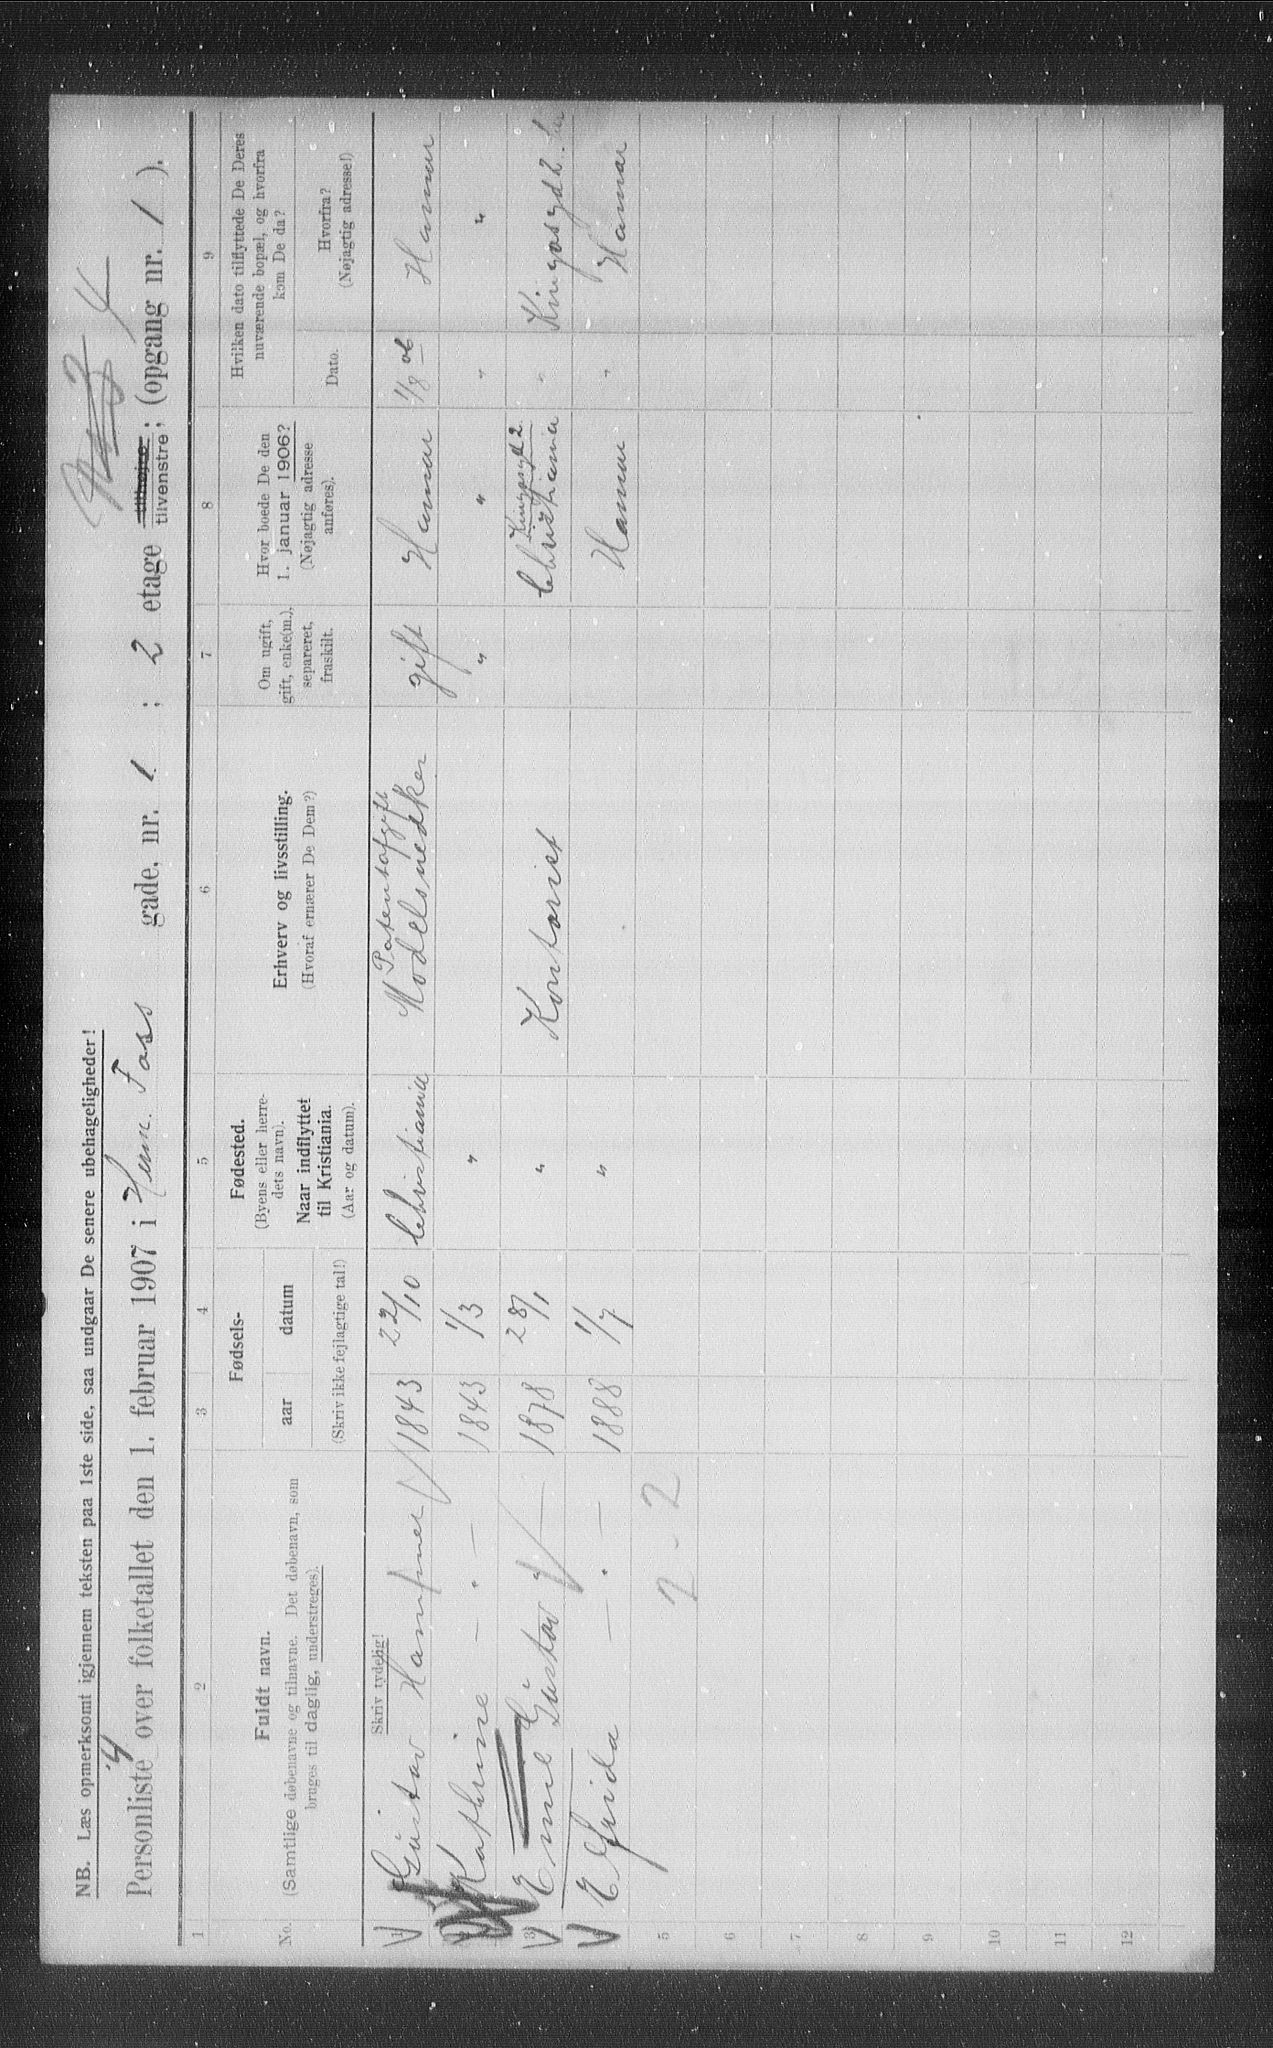 NB. Læs opmerksomt igjennem teksten paa 1ste side, saa undgaar De senere ubehageligheder!
4
Personliste over folketallet den 1. februar 1907 i Herm. Foss gade, nr. 1 ; 2 etage tilhøjre tilvenstre; (opgang nr. 1 ).
1 2 3 4 5 6 7 8 9
No. Fuldt navn. (Samtlige døbenavne og tilnavne. Det døbenavn, som bruges til daglig, understreges).
Fødsels- aar datum (Skriv ikke fejlagtige tal!)
Fødested. (Byens eller herredets navn). Naar indflyttet til Kristiania. (Aar og datum).
Erhverv og livsstilling. (Hvoraf ernærer De Dem?)
Om ugift, gift, enke(m.), separeret, fraskilt.
Hvor boede De den 1. januar 1906? (Nøjagtig adresse anføres).
Hvilken dato tilflyttede De Deres nuværende bopæl, og hvorfra kom De da?
Dato. Hvorfra? (Nøjagtig adresse!)
Skriv tydelig!
1 Gustav 1843 22/10 Christiania Modelsnedker gift Hamar 1/8 06 Hamar
Kathrine — " — 1843 1/3 " " " " "
3 Emil Gustav 1878 28/1 " Kontorist Kingosgd 2 Christiania " Kingosgd 2
Elfrida — " — 1888 1/7 " Hamar " Hamar
2 - 2
5
6
7
8
9
10
11
12